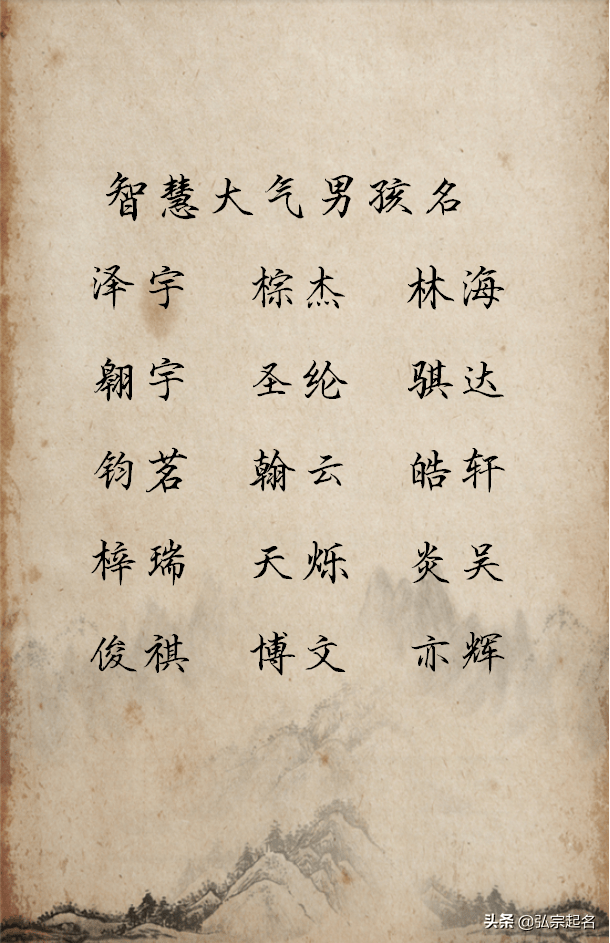 智慧大气男孩名
泽宇 棕杰 林海
翱宇 圣纶 骐达
钧茗 翰云 皓轩
梓瑞 天烁 炎吴
俊祺 博文 亦辉
头条 @弘宗起名